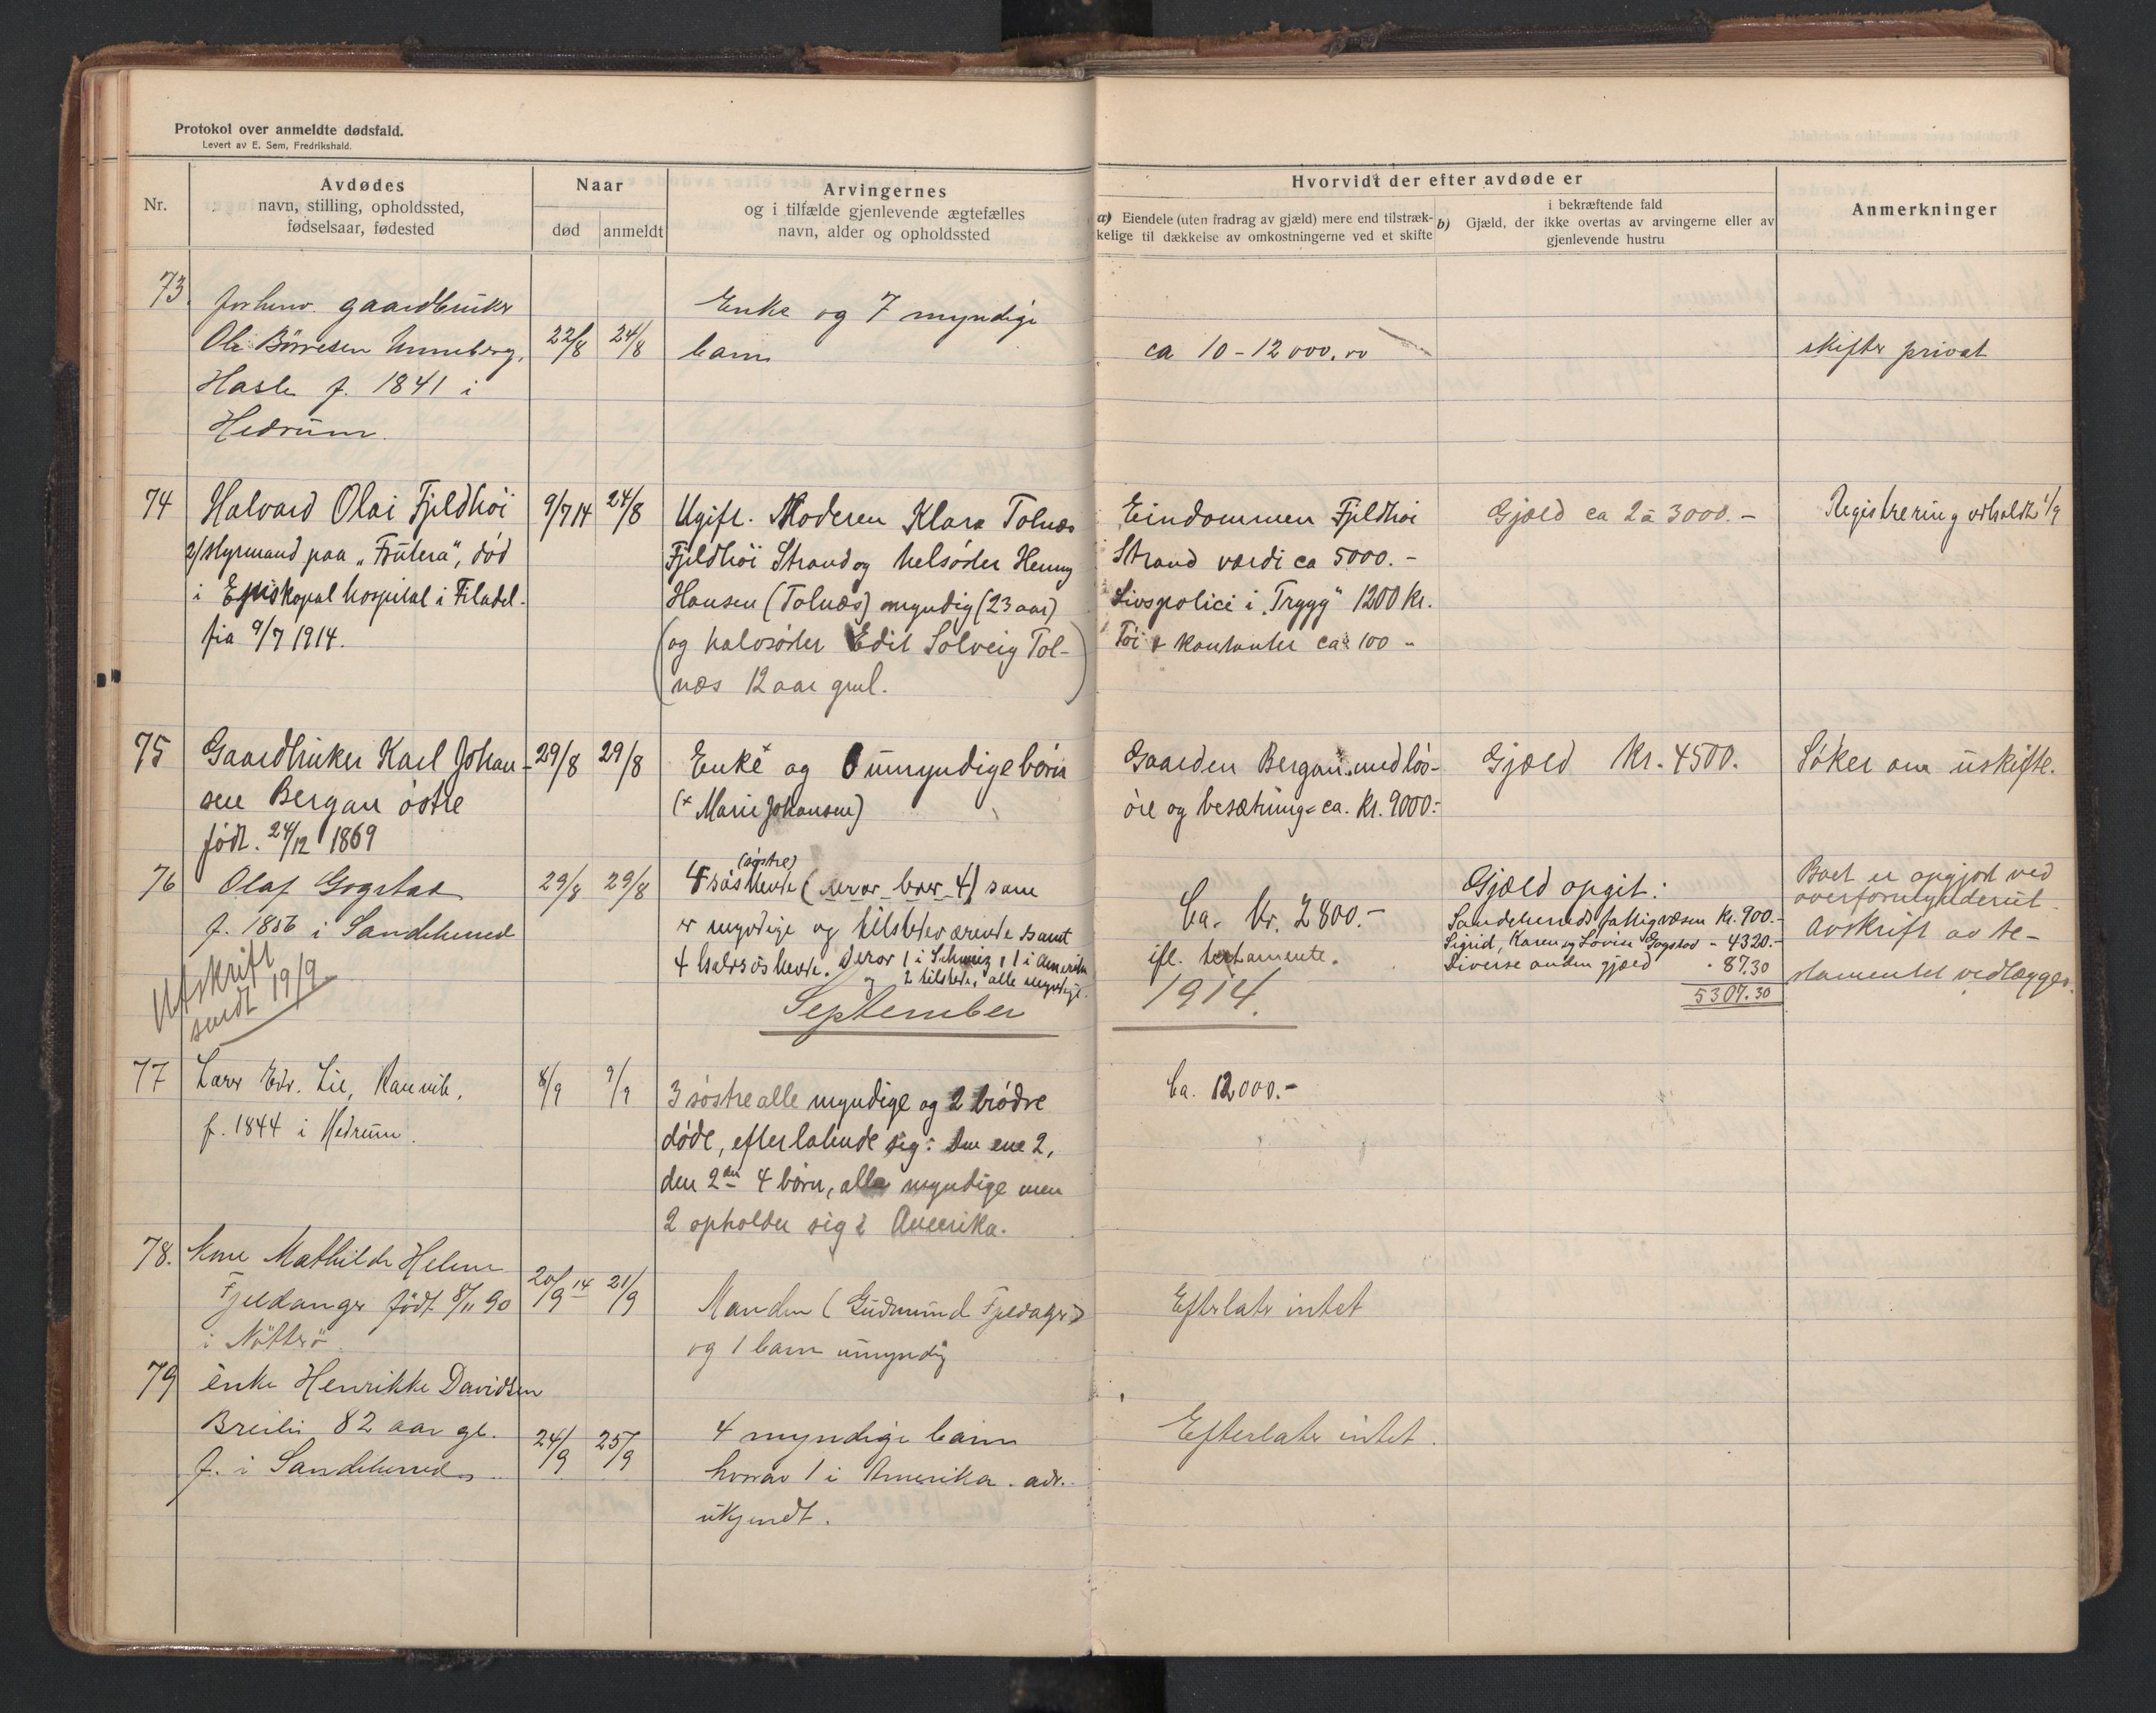 Protokol over anmeldte dødsfald.
Levert av E. Sem, Fredrikshald.
Nr.
Avdødes
navn, stilling, opholdssted,
fødselsaar, fødested
Naar
død
anmeldt
Arvingernes
og i tilfælde gjenlevende ægtefælles
navn, alder og opholdssted
Hvorvidt der efter avdøde er
a) Eiendele (uten fradrag av gjæld) mere end tilstræk-
kelige til dækkelse av omkostningerne ved et skifte
i bekræftende fald
b) Gjæld, der ikke overtas av arvingerne eller av
gjenlevende hustru
Anmerkninger
73
forhenv. gaardbruker
Ole Børresen Unneberg,
Hasle f. 1841 i
Hedrum.
22/8
24/8
Enke og 7 myndige
barn
ca 10-12000.00
skifter privat
74
Halvard Olai Fjeldhøi
2/styrmand paa "Frutera", død
i Episkopal hospital i Filadel-
fia 9/7 1914.
9/7 14
24/8
Ugift. Moderen Klara Tolnæs
Fjeldhøi Strand og helsøster Henny
Hansen (Tolnæs) myndig (23 aar)
(og halvsøster Edit Solveig Tol-
næs 12 aar gml.)
Eindommen Fjeldhøi
Strand værdi ca 5000.-
Livspolice i "Trygg" 1200 kr.
Tøi & kontanter ca 100 -
Gjæld ca 2 à 3000.-
Registrering avholdt 1/9
75
Gaardbruker Karl Johan-
sen Bergan østre
født. 24/12 1869
29/8
29/8
Enke+ og 6 umyndige børn
(+ Marie Johansen)
Gaarden Bergan med løs-
øre og besætning = ca. Kr. 9000:-
Gjæld Kr. 4500.
Søker om uskifte.
76
Olaf Gogstad
f. 1856 i Sandeherred
Utskrift
sendt 19/9
29/8
29/8
(søstre)
4 søskende (hvorav bror 4) som
er myndige og tilstedeværende samt
4 halvsøskende. Derav 1 i Schweiz, 1 i Amerika
og 2 tilstede, alle myndige.
Ca. Kr. 2800.-
ifl. testamente.
Gjæld opgit:
Sandeherreds fattigvæsen Kr. 900.-
Sigrid, Karen og Lovise Gogstad - 4320.-
Diverse anden gjæld - 87.30
5307.30
Boet er opgjort ved
overformynderiet
Avskrift av te-
stamentet vedlægges.
September
1914.
77
Lærer Edv. Lie, Ranvik,
f. 1844 i Hedrum.
8/9
9/9
3 søstre alle myndige og 2 brødre
døde, efterlatende sig: Den ene 2,
den 2den 4 børn, alle myndige men
2 opholder sig i Amerika.
Ca. 12000.-
78.
kone Mathilde Helene
Fjeldanger født 8/11 90
i Nøtterø
20/9 14
21/9
Manden (Gudmund Fjeldager)
og 1 barn umyndig
Efterlater intet
79
enke Henrikke Davidsen
Breilin 82 aar gl.
f. i Sandeherred
24/9
25/9
4 myndige barn
hvorav 1 i Amerika. adr.
ukjendt.
Efterlater intet.